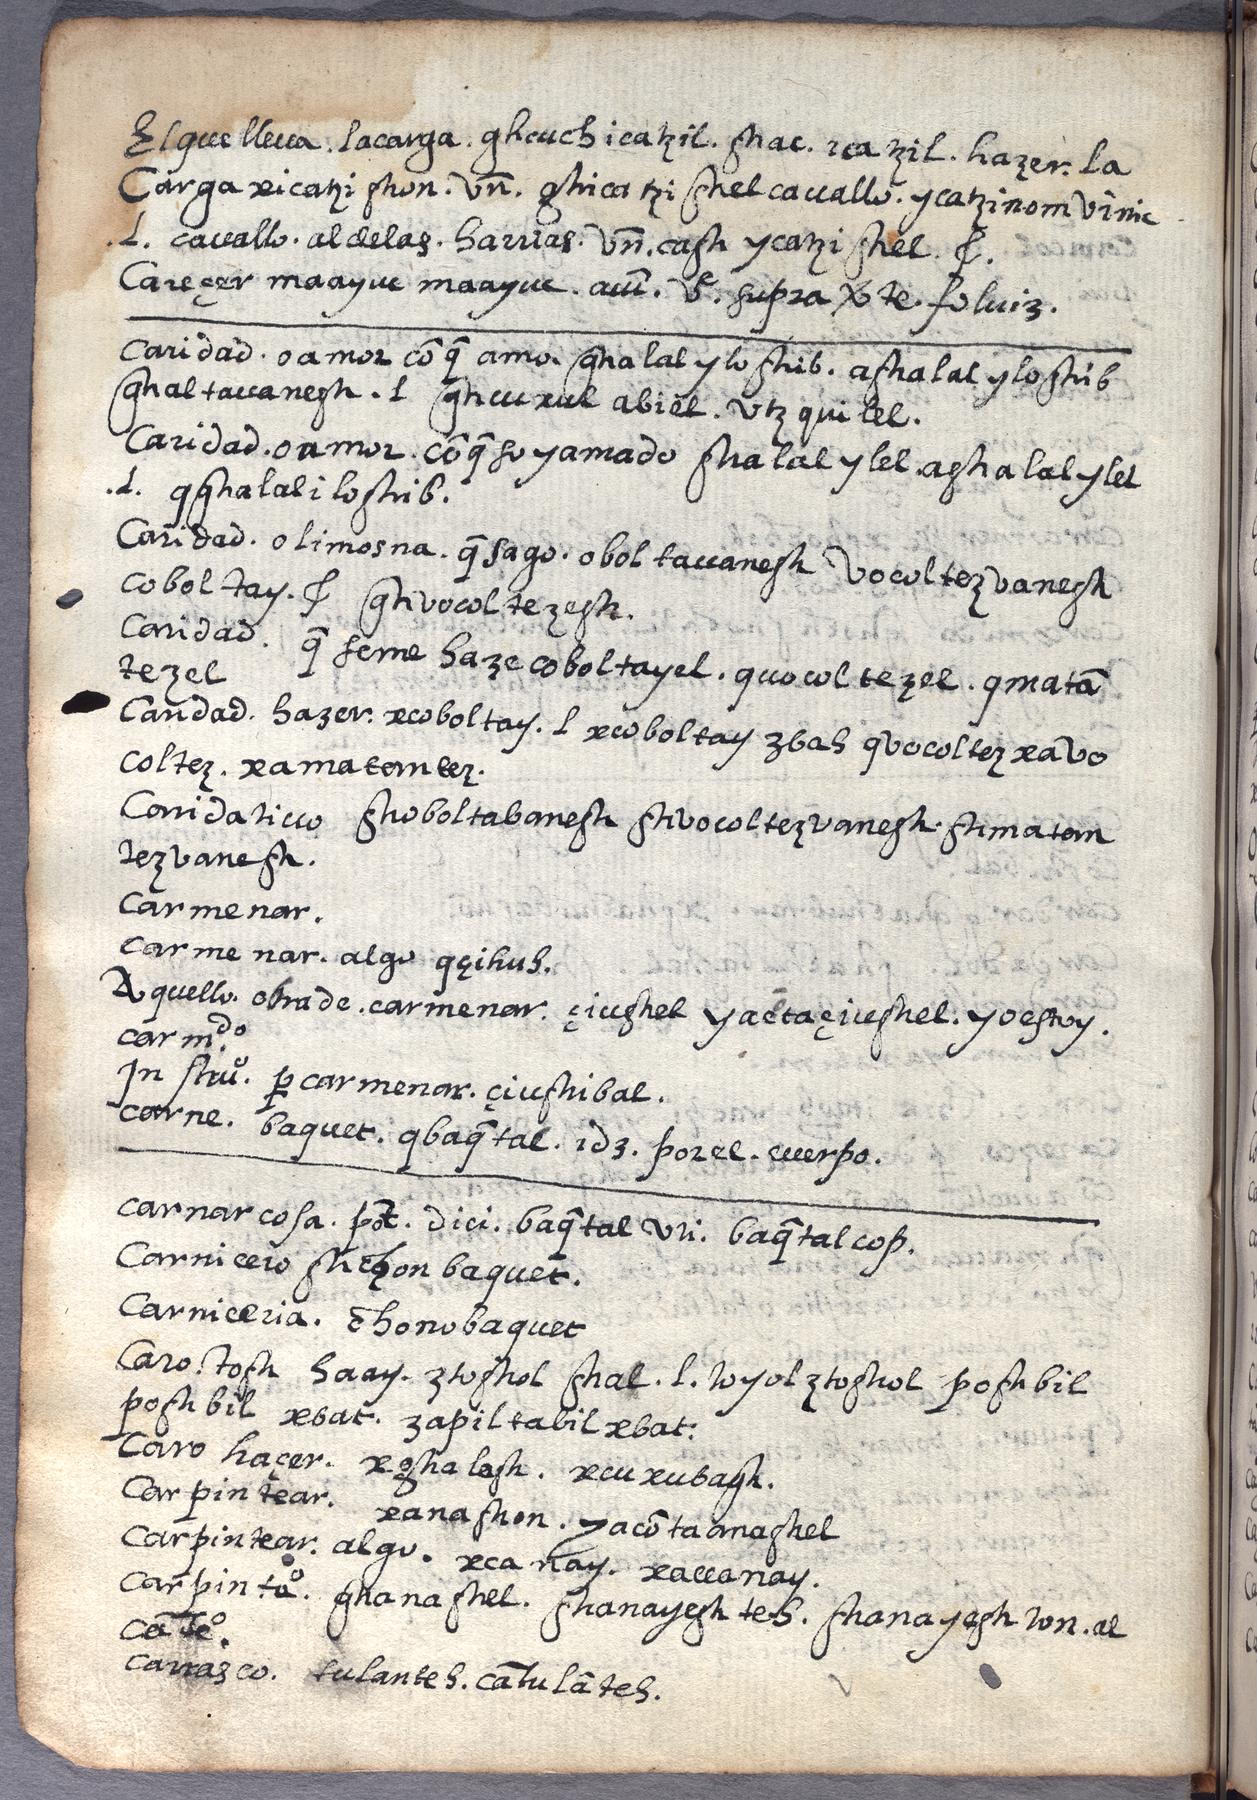 Elque lleua. lacarga. ghcuch icatzil. shac. icatzil. hazer. la
Carga xicatzi shon. vn̄. ghicatzi shel cauallo. ycatzinom vinic
.l. cauallo. aldelas. harrias. vn̄. cash ycatzi shel.
Careçer maayuc maayuc. auī. vᵉ. supra
Caridad. o amor cō q̄ amo. ghalal yloshib. ashalal yloshib
ghaltauanegh. l ghcuxul abiel. vtz quilel.
Caridad. o amor. cō q̄ soy amado shalal ylel. ashalal ylel
.l. qghalali loshib.
Caridad. o limosna. q̄ hago. obol tauanegh vocoltezvanegh
coboltay. ghivocoltezegh.
Caridad. q̄ seme haze coboltayel. quocoltezel. qmatā
tezel
Caridad. hazer. xcoboltay. l xcoboltay zbah qvocoltez xavo
coltez. xamatamtez.
Caridatiuo shoboltabanegh shivocoltezvanegh. shimatam
tezvanesh.
Carmenar.
Carmenar. algo qçihuh.
Aquello. obra de. carmenar. çiughel yaētaçiushel. yoestoy.
carmᵈᵒ.
Instrūᵒ. p̱ carmenar. çiushibal.
Carne. baquet. qbaq̄tal. idz. porel. cuerpo.
Carnar cosa. pōt. dici. baq̄tal vli. baq̄tal cop.
Carnicero baquet.
Carniceria. c̄honobaquet
Caro. tosh haay. ztoshol shal. l. toyol ztoshol poshbil
poshbil xbat. zapiltabil xbat.
Caro haçer. xghalagh. xcuxubagh.
Carpintear. xanashon. yacōtaanashel
Carpintear. algo. xcanay. xaccanay.
Carpintᵒ. ghanashel. shanayegh teh. shanayegh ton. al
Carrasco. tulanteh. cātulāteh.